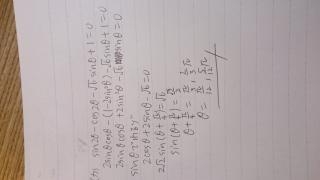 (5) sin2θ - cos2θ - √6 sinθ + 1 = 0
2sinθcosθ - (1 - 2sin²θ) - √6 sinθ + 1 = 0
2sinθcosθ + 2sin²θ - √6 sinθ = 0
2cosθ + 2sinθ - √6 = 0
2√2 sin(θ + π/4) = √6
sin(θ + π/4) = √3/2
θ + π/4 = π/3, 2/3π
θ = π/12, 5/12π